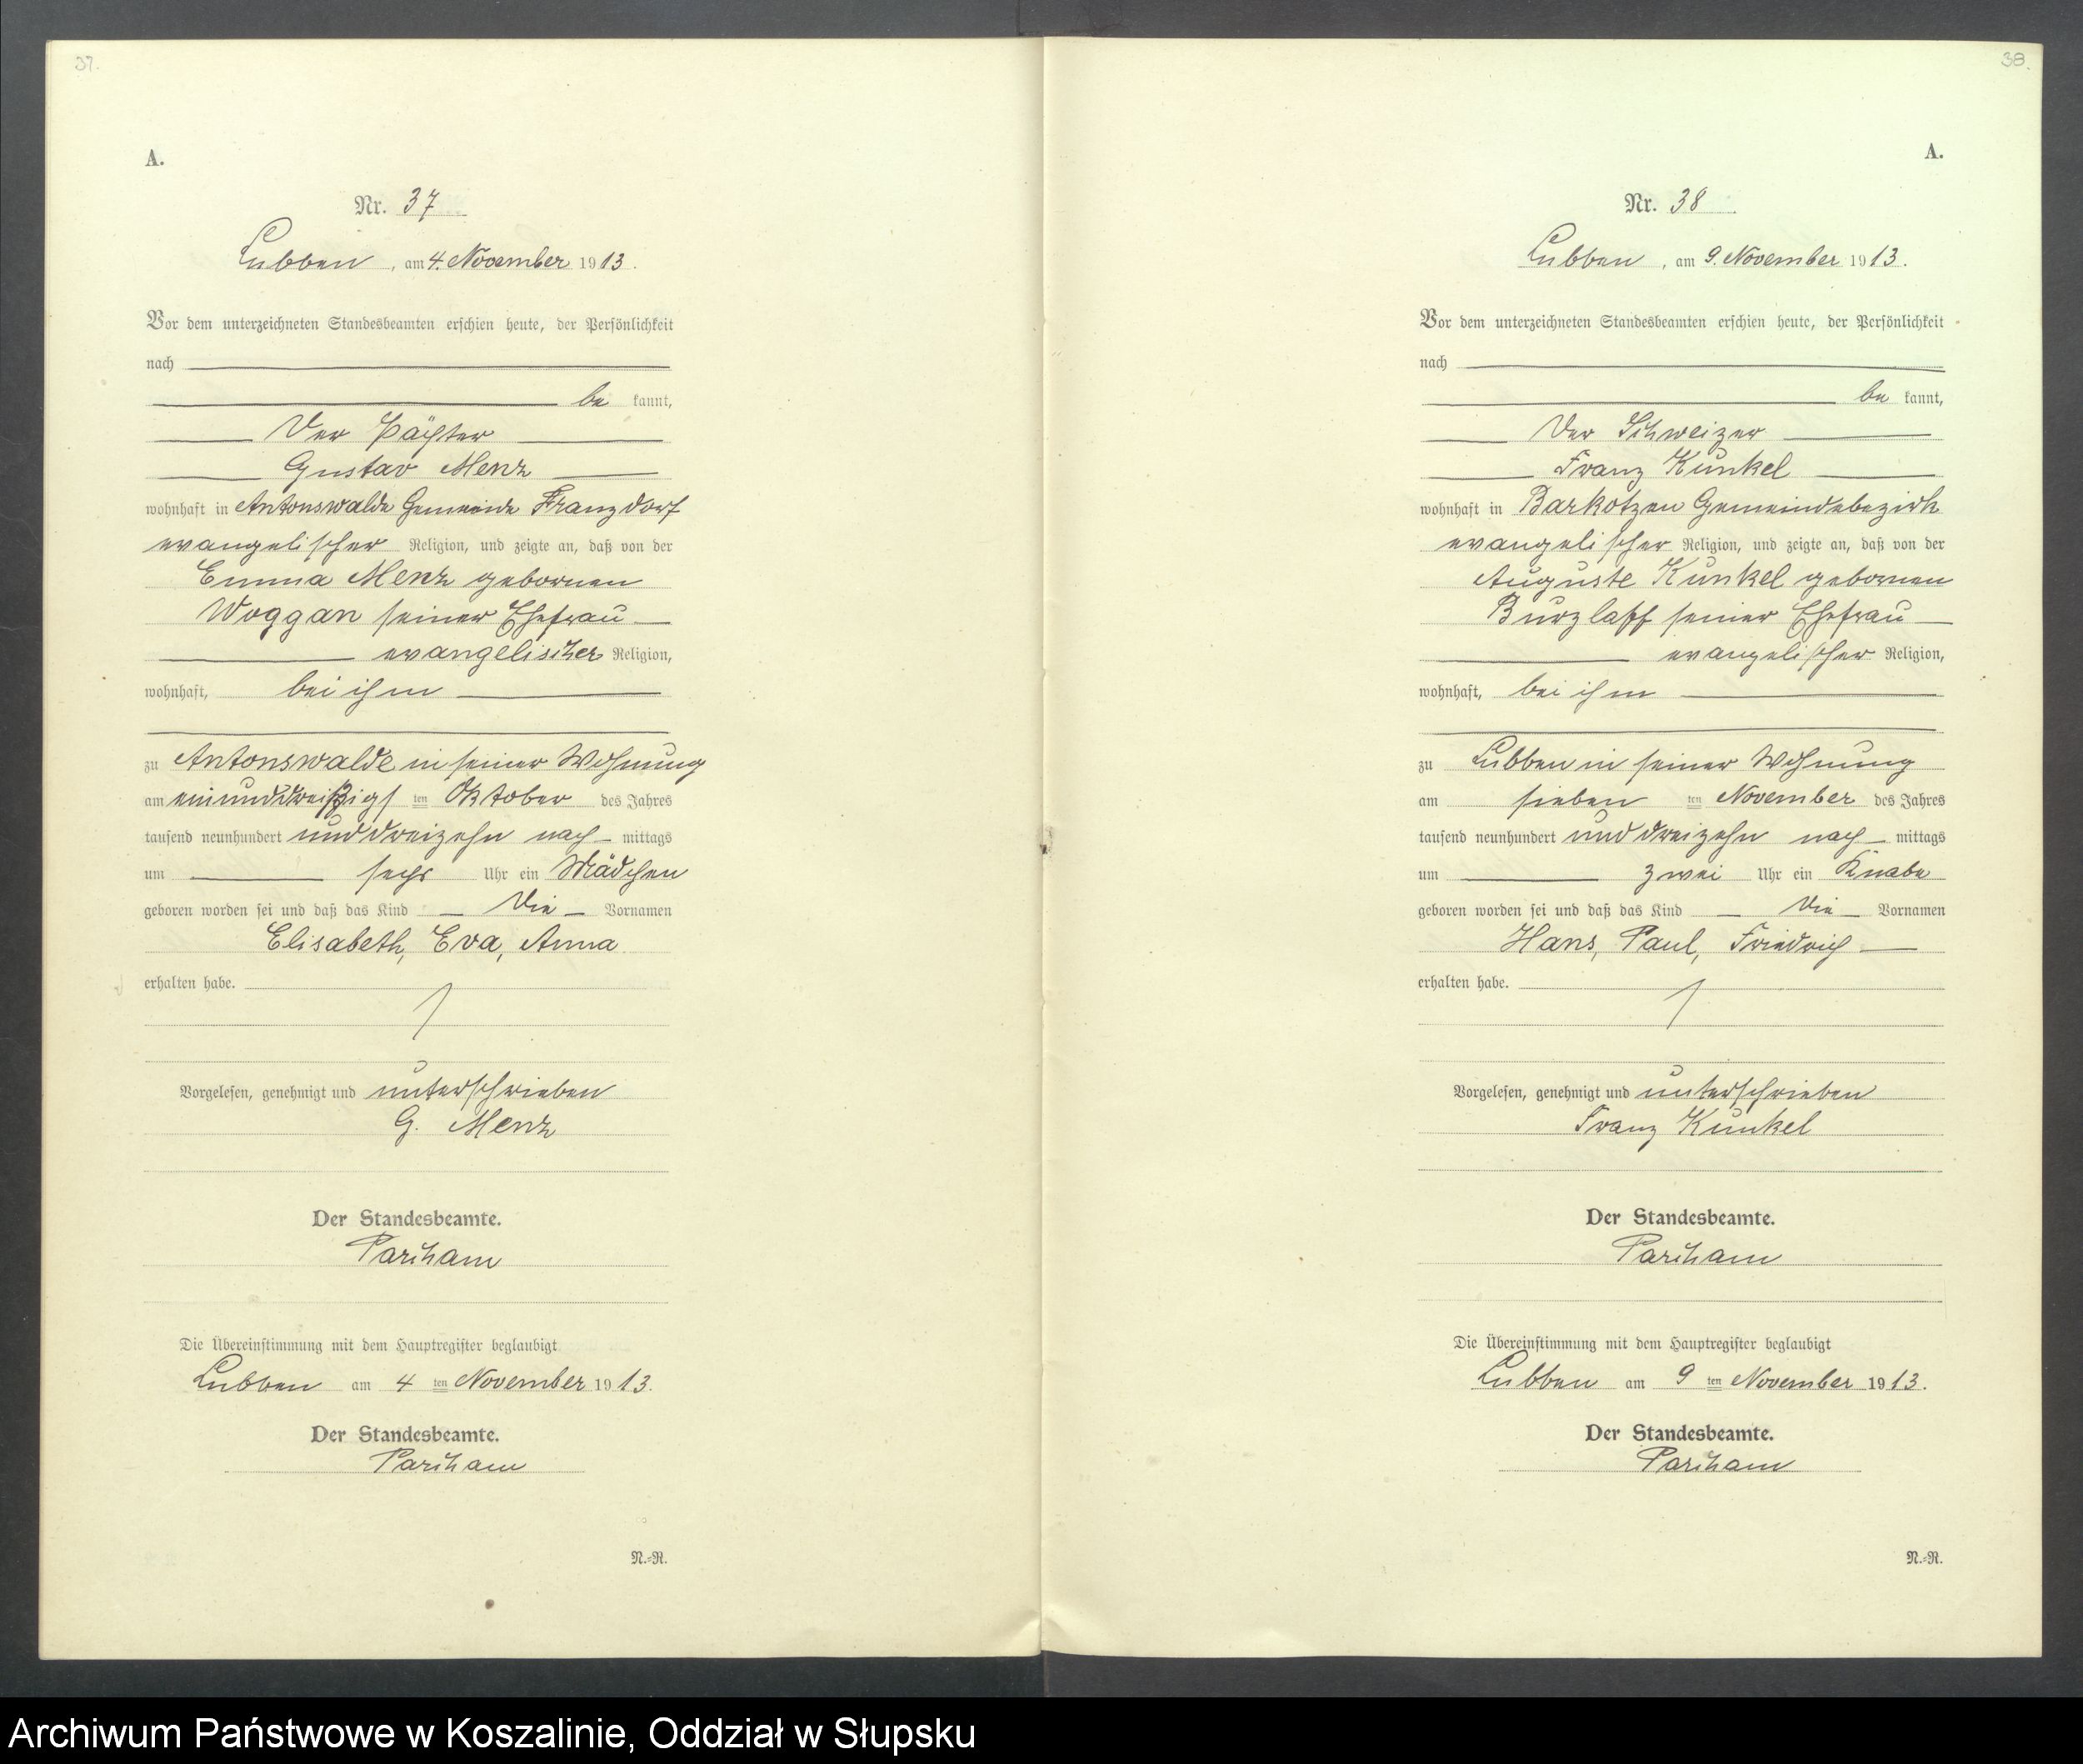 37.
A.
Nr. 37
Lubben, am 4. November 1913.
Vor dem unterzeichneten Standesbeamten erschien heute, der Persönlichkeit
nach
be kannt,
der Pächter
Gustav Menz
wohnhaft in Antonswalde Gemeinde Franzdorf
evangelischer Religion, und zeigte an, daß von der
Emma Menz gebornen
Woggan seiner Ehefrau
evangelischer Religion,
wohnhaft, bei ihm
zu Antonswalde in seiner Wohnung
am einunddreißigsten Oktober des Jahres
tausend neunhundert und dreizehn nach mittags
um sechs Uhr ein Mädchen
geboren worden sei und daß das Kind die Vornamen
Elisabeth, Eva, Anna
erhalten habe.
Vorgelesen, genehmigt und unterschrieben
G. Menz
Der Standesbeamte.
Parcham
Die Übereinstimmung mit dem Hauptregister beglaubigt
Lubben am 4 ten November 1913.
Der Standesbeamte.
Parcham
N.=R.
38.
A.
Nr. 38
Lubben, am 9. November 1913.
Vor dem unterzeichneten Standesbeamten erschien heute, der Persönlichkeit
nach
be kannt,
der Schweizer
Franz Kunkel
wohnhaft in Barkotzen Gemeindebezirk
evangelischer Religion, und zeigte an, daß von der
Auguste Kunkel gebornen
Burzlaff seiner Ehefrau
evangelischer Religion,
wohnhaft, bei ihm
zu Lubben in seiner Wohnung
am sieben ten November des Jahres
tausend neunhundert und dreizehn nach mittags
um zwei Uhr ein Knabe
geboren worden sei und daß das Kind die Vornamen
Hans, Paul, Friedrich
erhalten habe.
Vorgelesen, genehmigt und unterschrieben
Franz Kunkel
Der Standesbeamte.
Parcham
Die Übereinstimmung mit dem Hauptregister beglaubigt
Lubben am 9 ten November 1913.
Der Standesbeamte.
Parcham
N.=R.
Archiwum Państwowe w Koszalinie, Oddział w Słupsku